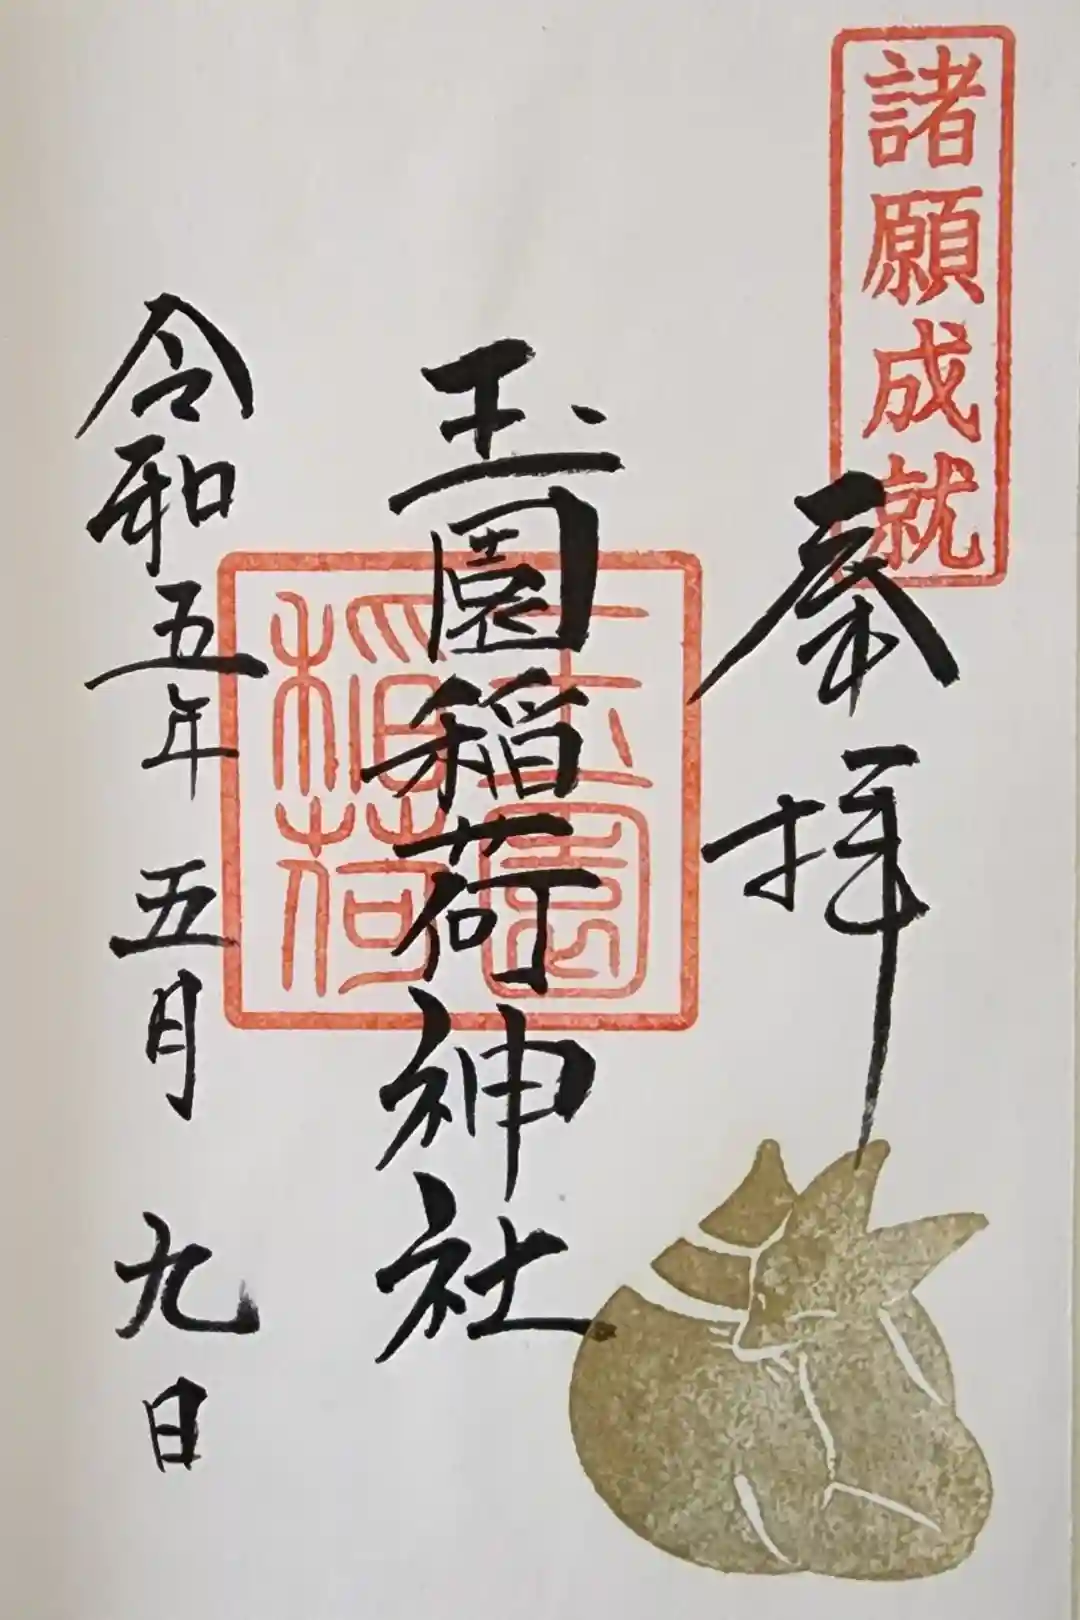 諸願成就
奉拝
玉園稲荷神社
玉園
稲荷
令和五年 五月 九日